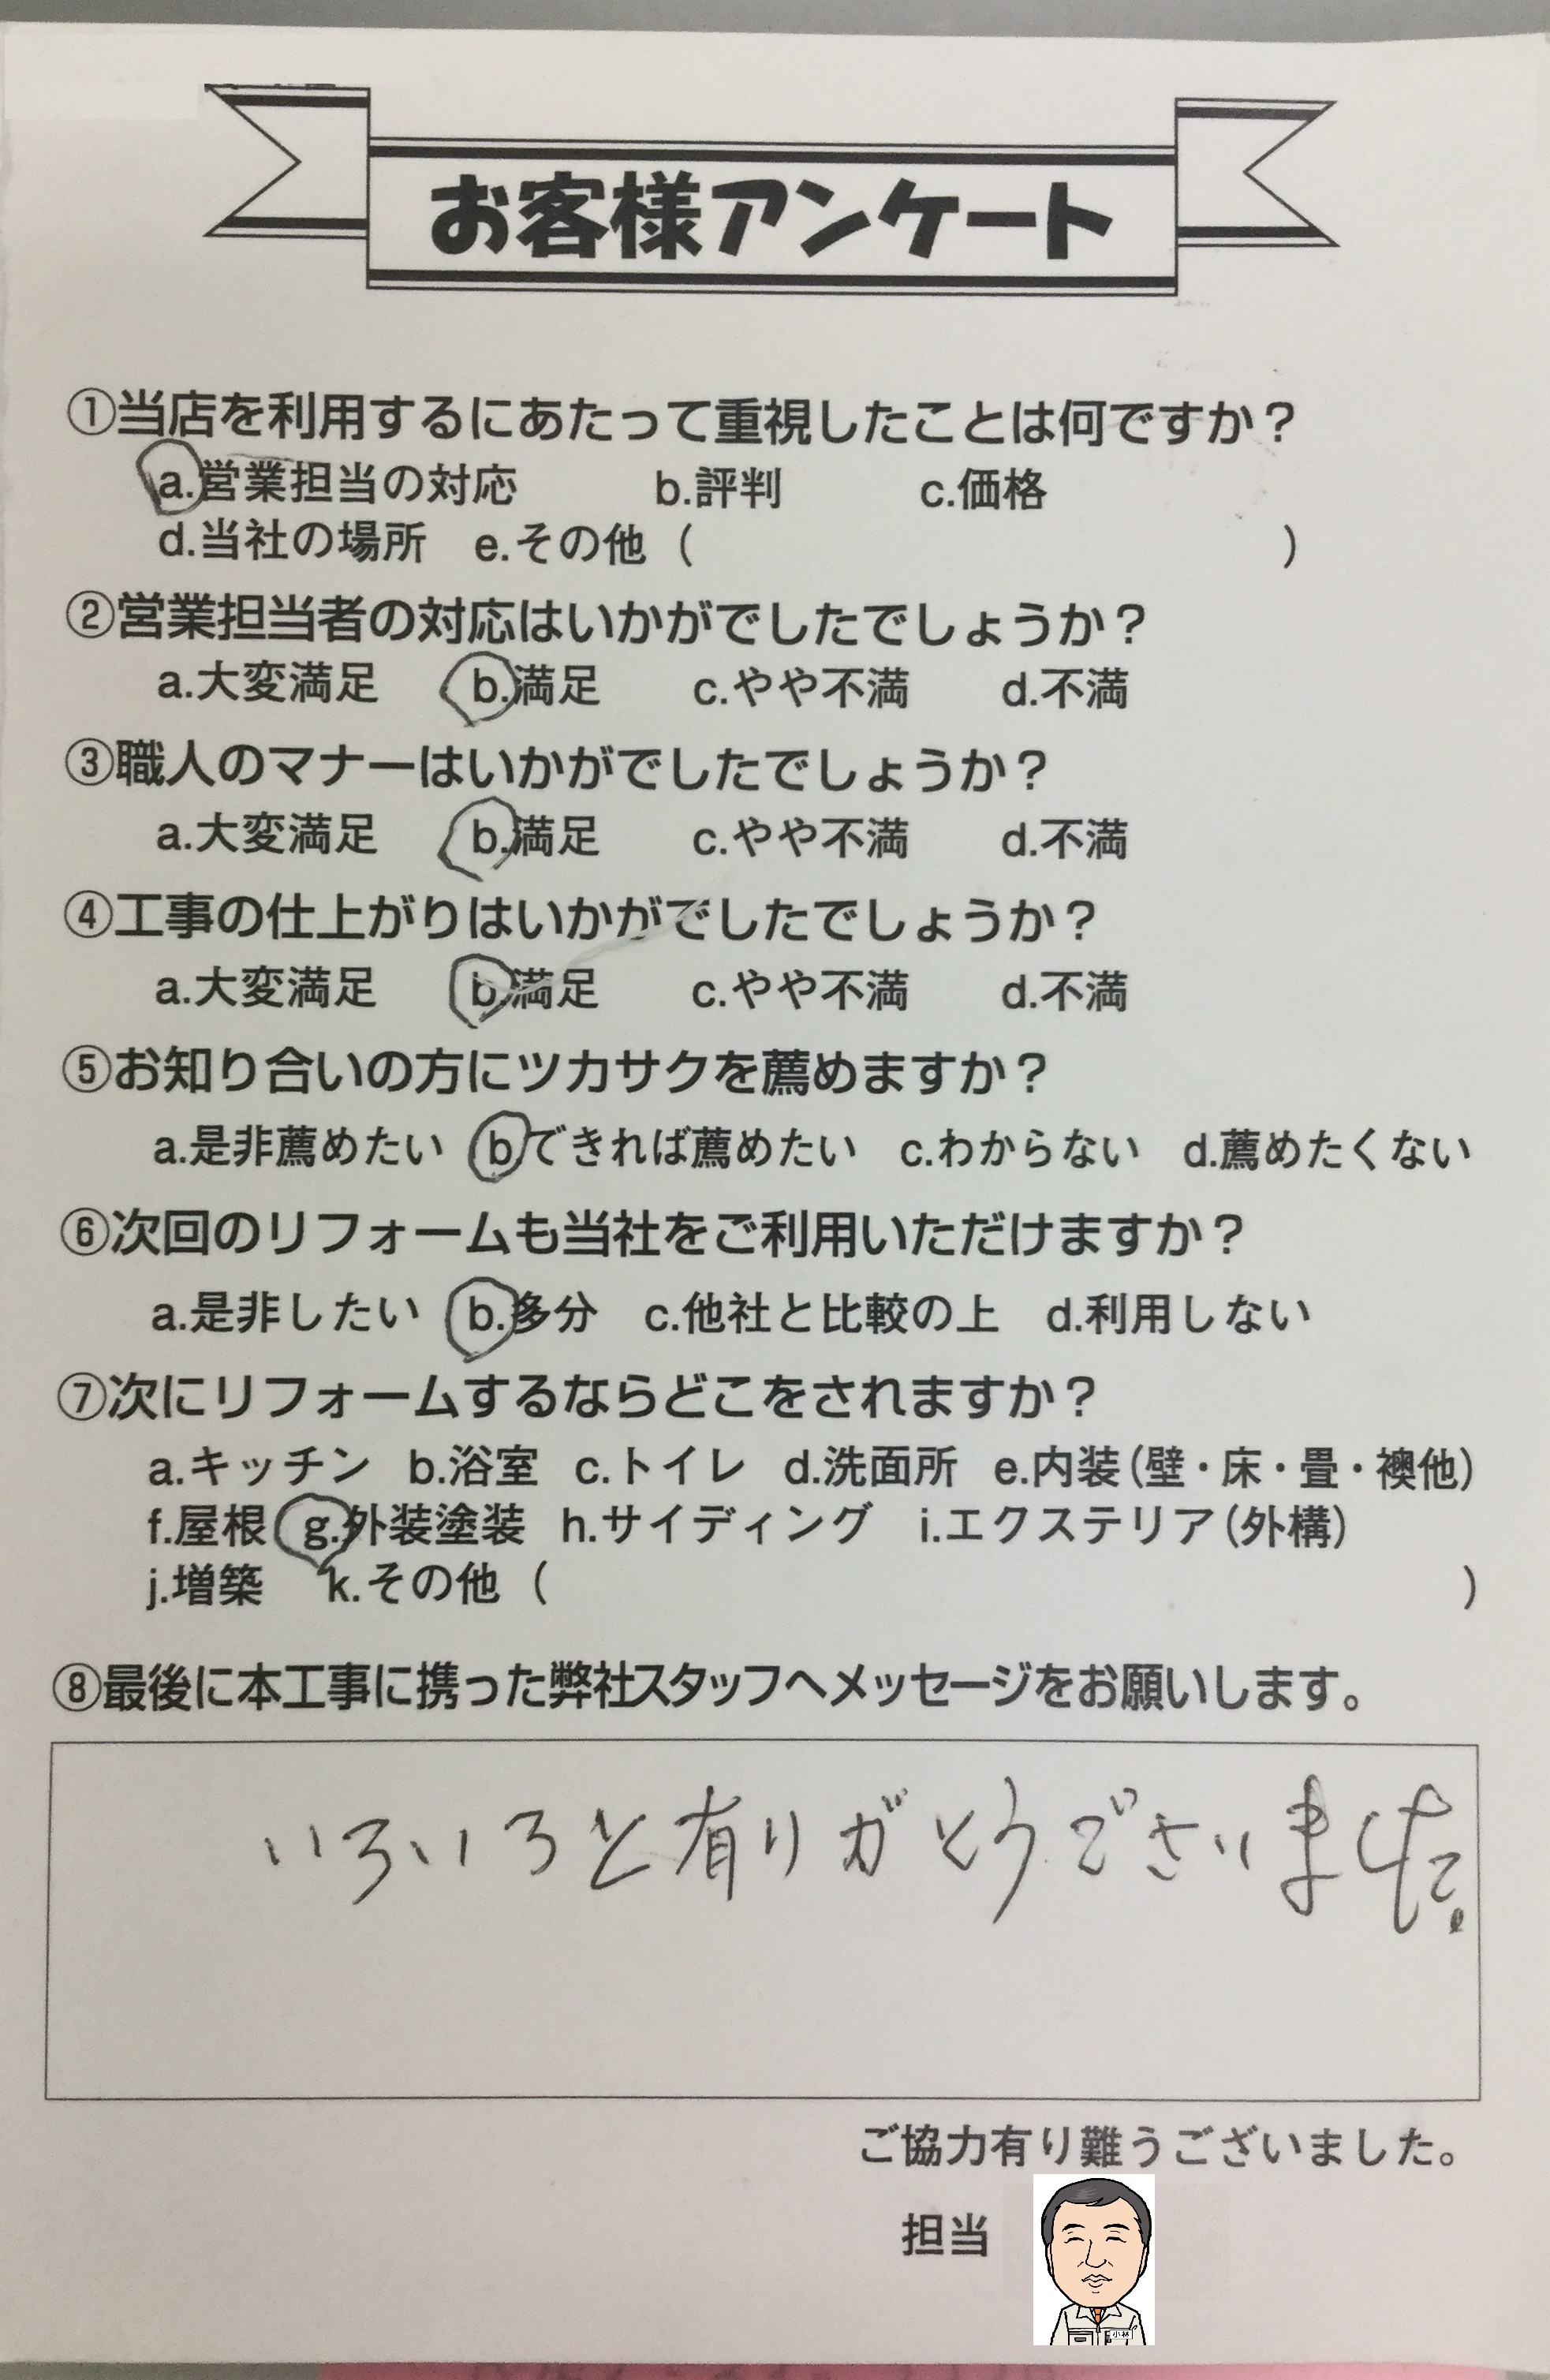 お客様アンケート
①当店を利用するにあたって重視したことは何ですか？
a.営業担当の対応 b.評判 c.価格
d.当社の場所 e.その他（ ）
②営業担当者の対応はいかがでしたでしょうか？
a.大変満足 b.満足 c.やや不満 d.不満
③職人のマナーはいかがでしたでしょうか？
a.大変満足 b.満足 c.やや不満 d.不満
④工事の仕上がりはいかがでしたでしょうか？
a.大変満足 b.満足 c.やや不満 d.不満
⑤お知り合いの方にツカサクを薦めますか？
a.是非薦めたい b.できれば薦めたい c.わからない d.薦めたくない
⑥次回のリフォームも当社をご利用いただけますか？
a.是非したい b.多分 c.他社と比較の上 d.利用しない
⑦次にリフォームするならどこをされますか？
a.キッチン b.浴室 c.トイレ d.洗面所 e.内装（壁・床・畳・襖他）
f.屋根 g.外装塗装 h.サイディング i.エクステリア（外構）
j.増築 k.その他（ ）
⑧最後に本工事に携った弊社スタッフへメッセージをお願いします。
いろいろと有りがとうございました。
ご協力有り難うございました。
担当
小林